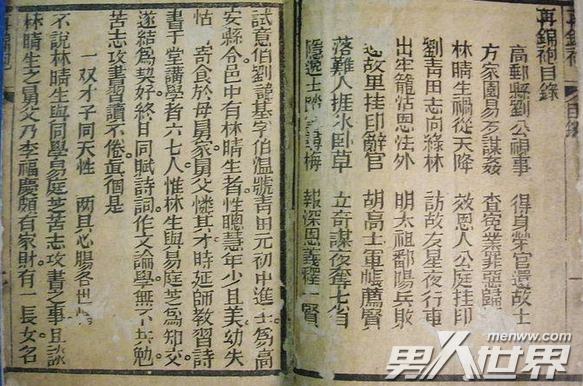 再錦袍
目錄
再錦袍目錄
高郵縣劉公視事 得員榮官還故士
方家園易歹謀姦 查寃業罪惡歸
林晴生禍從天降 效恩人公庭挂印
劉青田志向綠林 訪故友星夜行車
出生籠沽恩性外 明太祖鄱陽兵敗
故里挂印辭官 胡高士軍帳薦賢
落難人捱氷卧草 立奇謀夜奪七省
隱士踏梅 報深恩義釋一賢
試意伯劉諱基字伯溫號青田元初中進士爲高
安縣令邑中有林晴生者性聰慧年少且美幼失
怙 寄食於母舅家舅父憐其才時延師教習詩
書于堂講學者六七人惟林生與易庭芝爲知交
遂結爲契好終日同賦詩詞作文論學無不共勉
苦志攻書習讀不倦眞個是
一双才子同天性 两具心腸各世
不說林晴生與同學易庭芝苦志攻書之事且談
林晴生之舅父乃李福慶頗有家財有一長女名
menww.com
男人世界